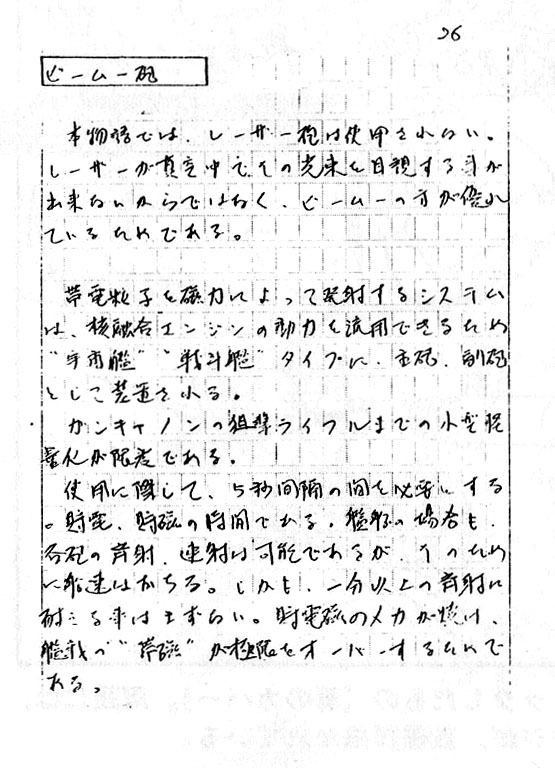 26
ビームー砲
本物語では、レーザー砲は使用されない。
レーザーが真空中でその光束を目視する事が
出来ないからではなく、ビームーの方が優れ
ているためである。
帯電粒子を磁力によって発射するシステム
は、核融合エンジンの動力を流用できるため
“宇宙艦”“戦斗艦”タイプに、主砲、副砲
として装置される。
ガンキャノンの狙撃ライフルまでの小型軽
量化が限度である。
使用に際して、5秒間隔の間を必要にする
。貯電、貯磁の時間である。艦船の場合も、
各砲の斉射、連射は可能であるが、そのため
に船速はおちる。しかも、一分以上の斉射に
耐える事はまずない。貯電磁のメカが焼け、
艦載の“帯磁”が極限をオーバーするためで
ある。